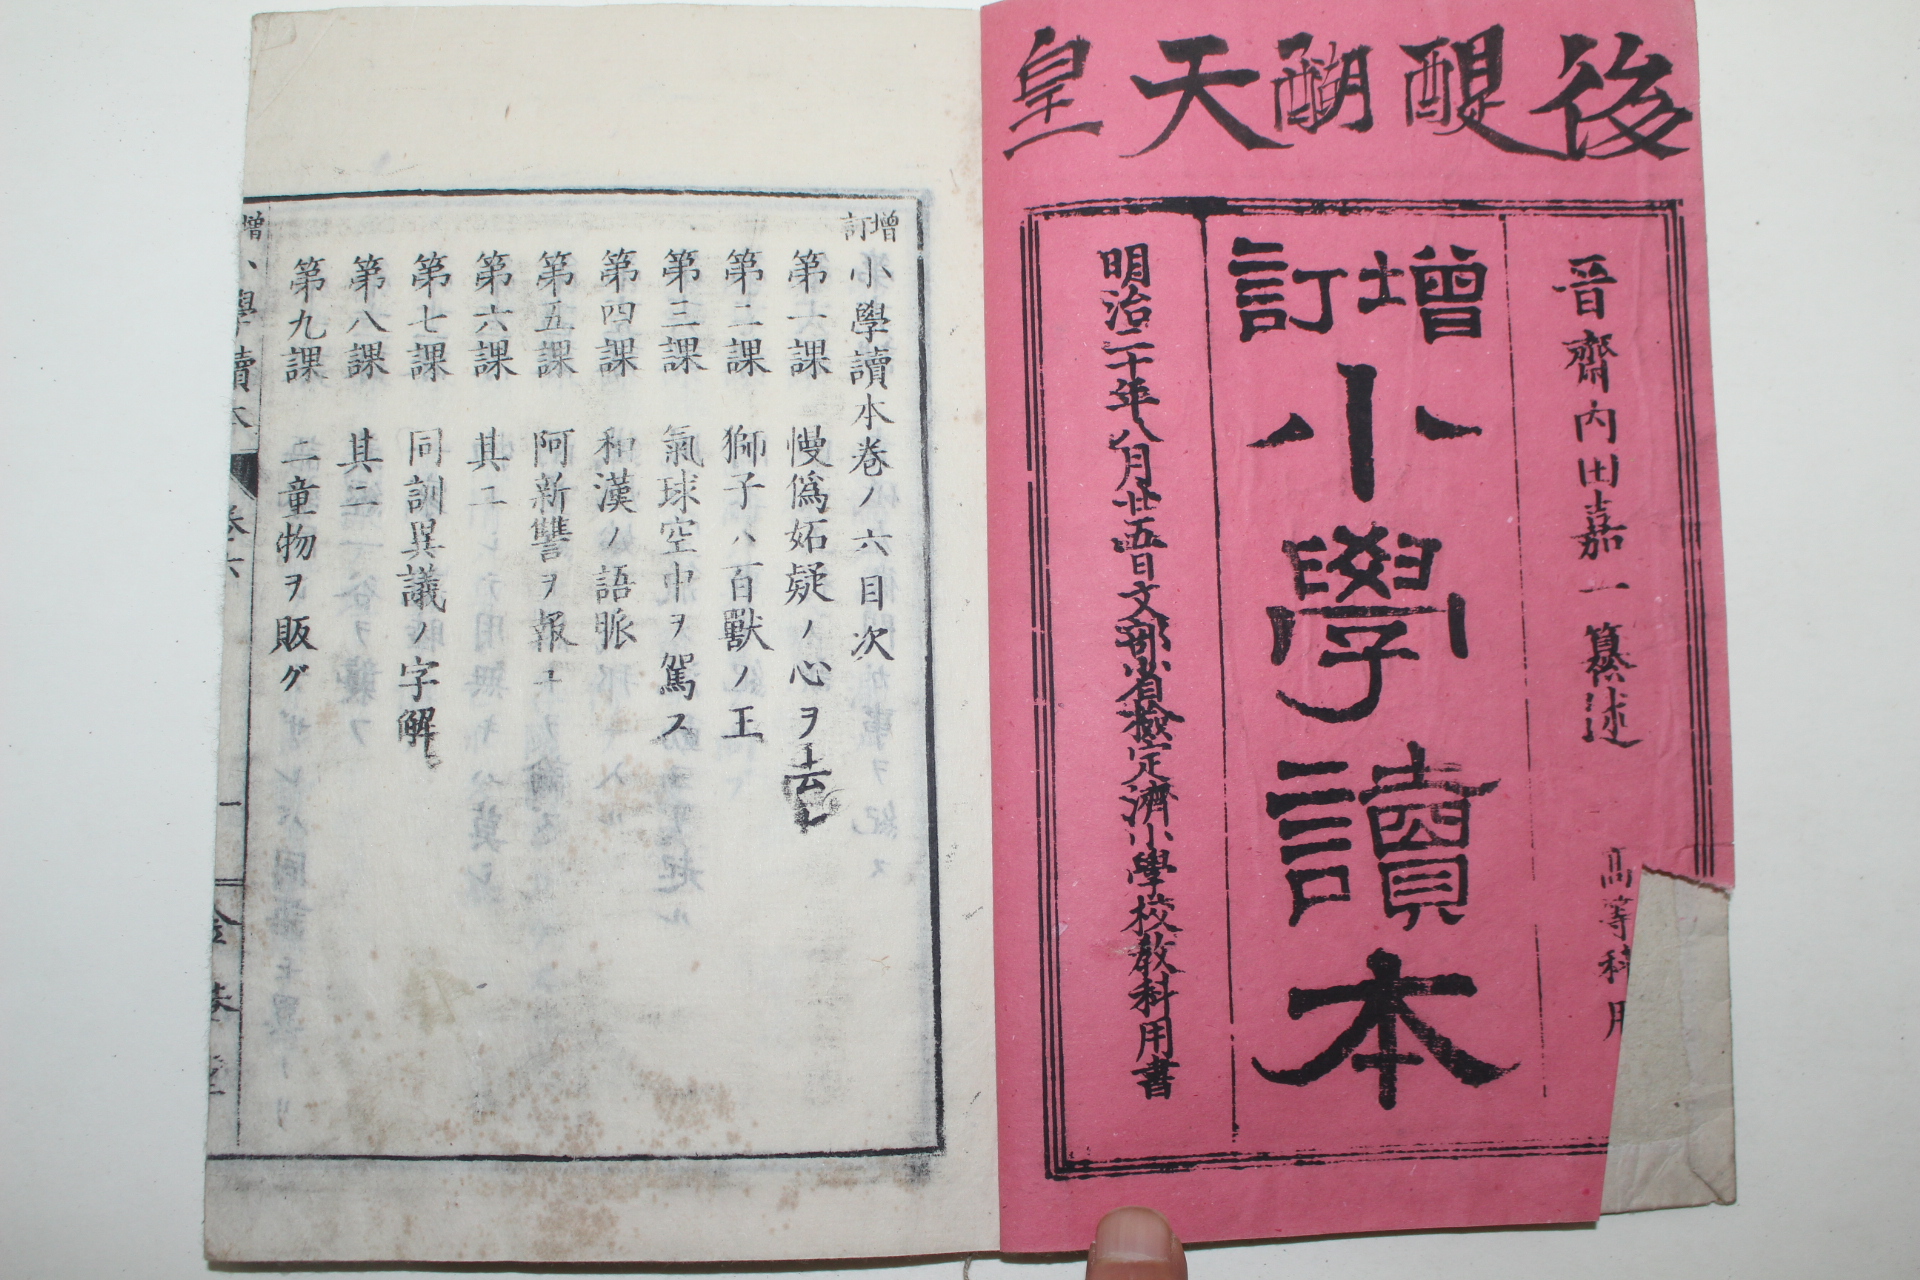 後醍醐天皇
晉齋内田嘉一纂述 高等科用
增訂小學讀本
明治二十年八月廿五日文部省檢定濟小學校教科用書
增訂小學讀本卷ノ六目次
第一課 慢僞妬疑ノ心ヲ去レ
第二課 獅子ハ百獸ノ王
第三課 氣球空中ヲ駕ス
第四課 和漢ノ語脈
第五課 阿新讐ヲ報ユ
第六課 其二
第七課 同訓異議ノ字解
第八課 其二
第九課 二童物ヲ販グ
增 小學讀本 卷六 一 金港堂